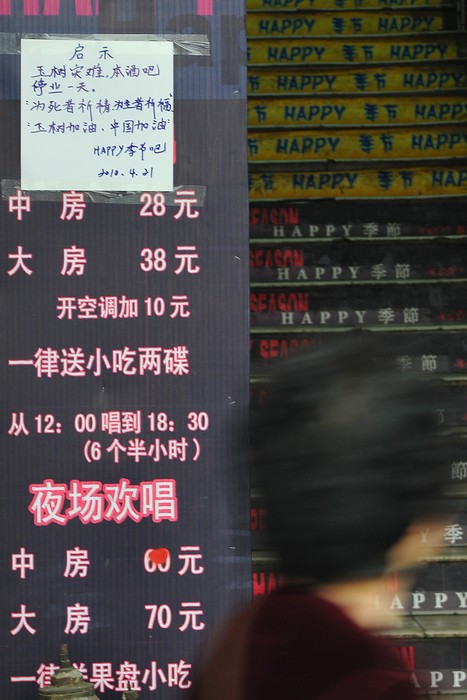 启示
玉树灾难,本酒吧
停业一天。
"为死者祈祷,为生者祈福"
"玉树加油、中国加油"
HAPPY季节吧
2010.4.21
中 房 28元
大 房 38元
开空调加10元
一律送小吃两碟
从12:00唱到18:30
(6个半小时)
夜场欢唱
中 房 元
大 房 70元
一律 果盘小吃
HAPPY 季节
HAPPY 季节
HAPPY 季节
HAPPY 季节
HAPPY 季节
HAPPY 季节
HAPPY 季节
SEASON
HAPPY 季節
SEASON
HAPPY 季節
SEASON
HAPPY 季節
季節
季節
季
HAPPY
HAPPY